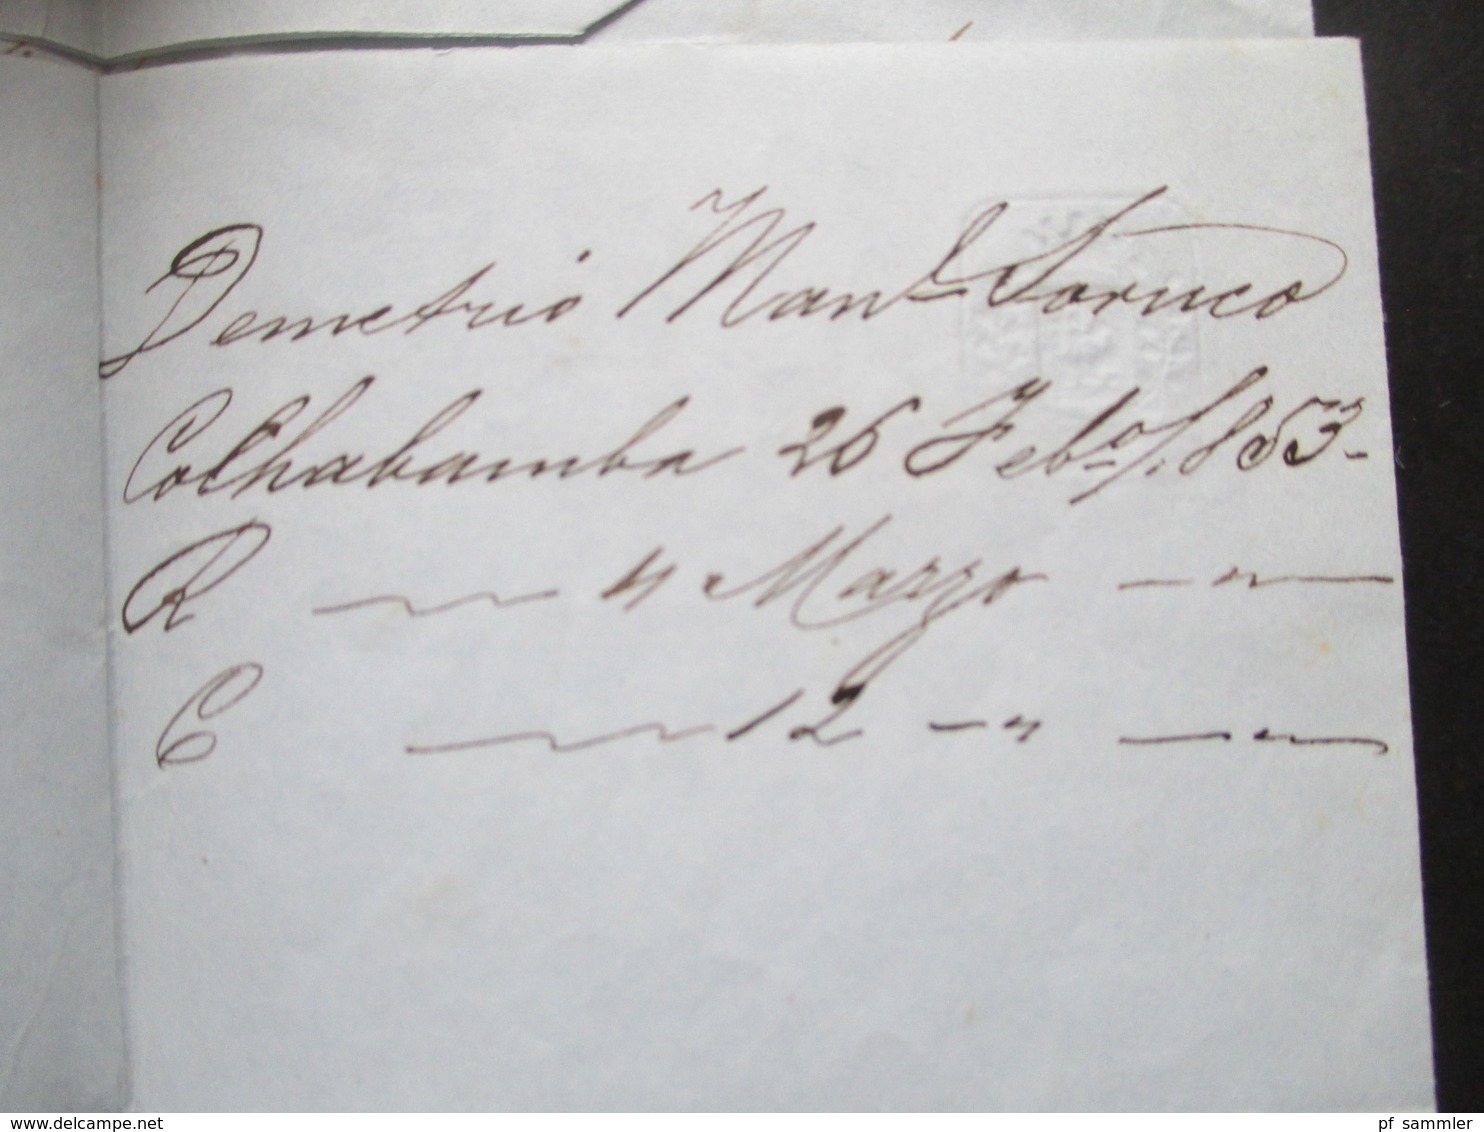 Demetrio Man.l Soruco
Cochabamba 26 Feb.o/.1853-
R 4 Marzo
C 12 - " -
www.delcampe.net
pf_sammler